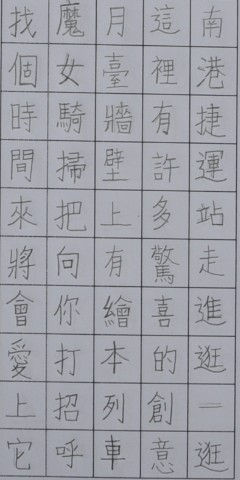 南港捷運站走進逛一逛
這裡有許多驚喜的創意
月臺牆壁上有繪本列車
魔女騎掃把向你打招呼
找個時間來將會愛上它